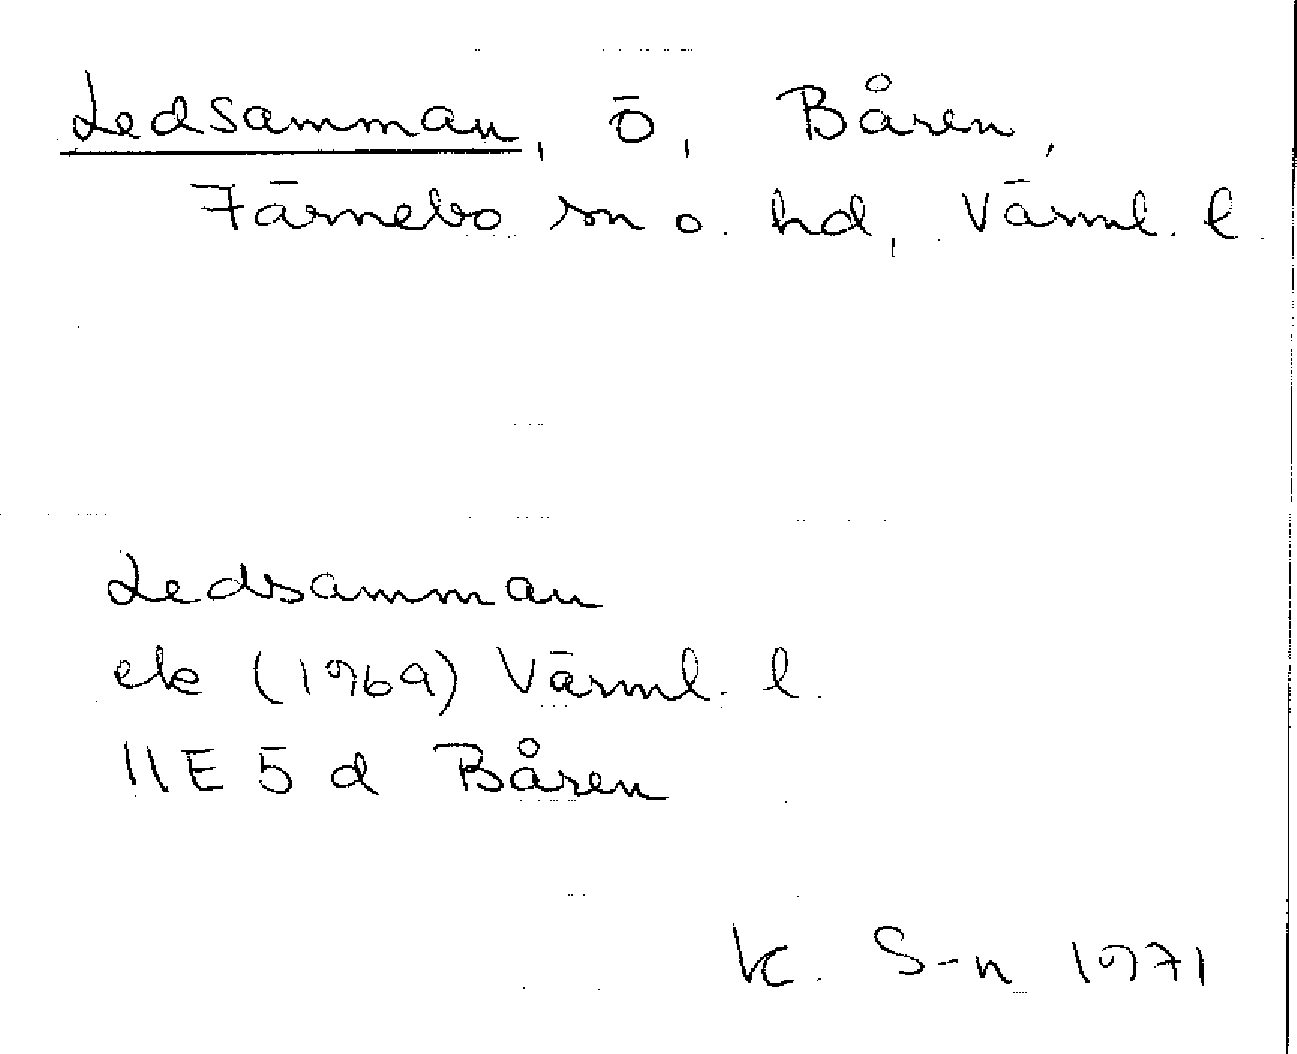 Ledsamman, ö, Båren,
Färnebo sn o. hd, Värml. l.
Ledsamman
ek (1969) Värml. l.
11E 5 d Båren
K. S-n 1971